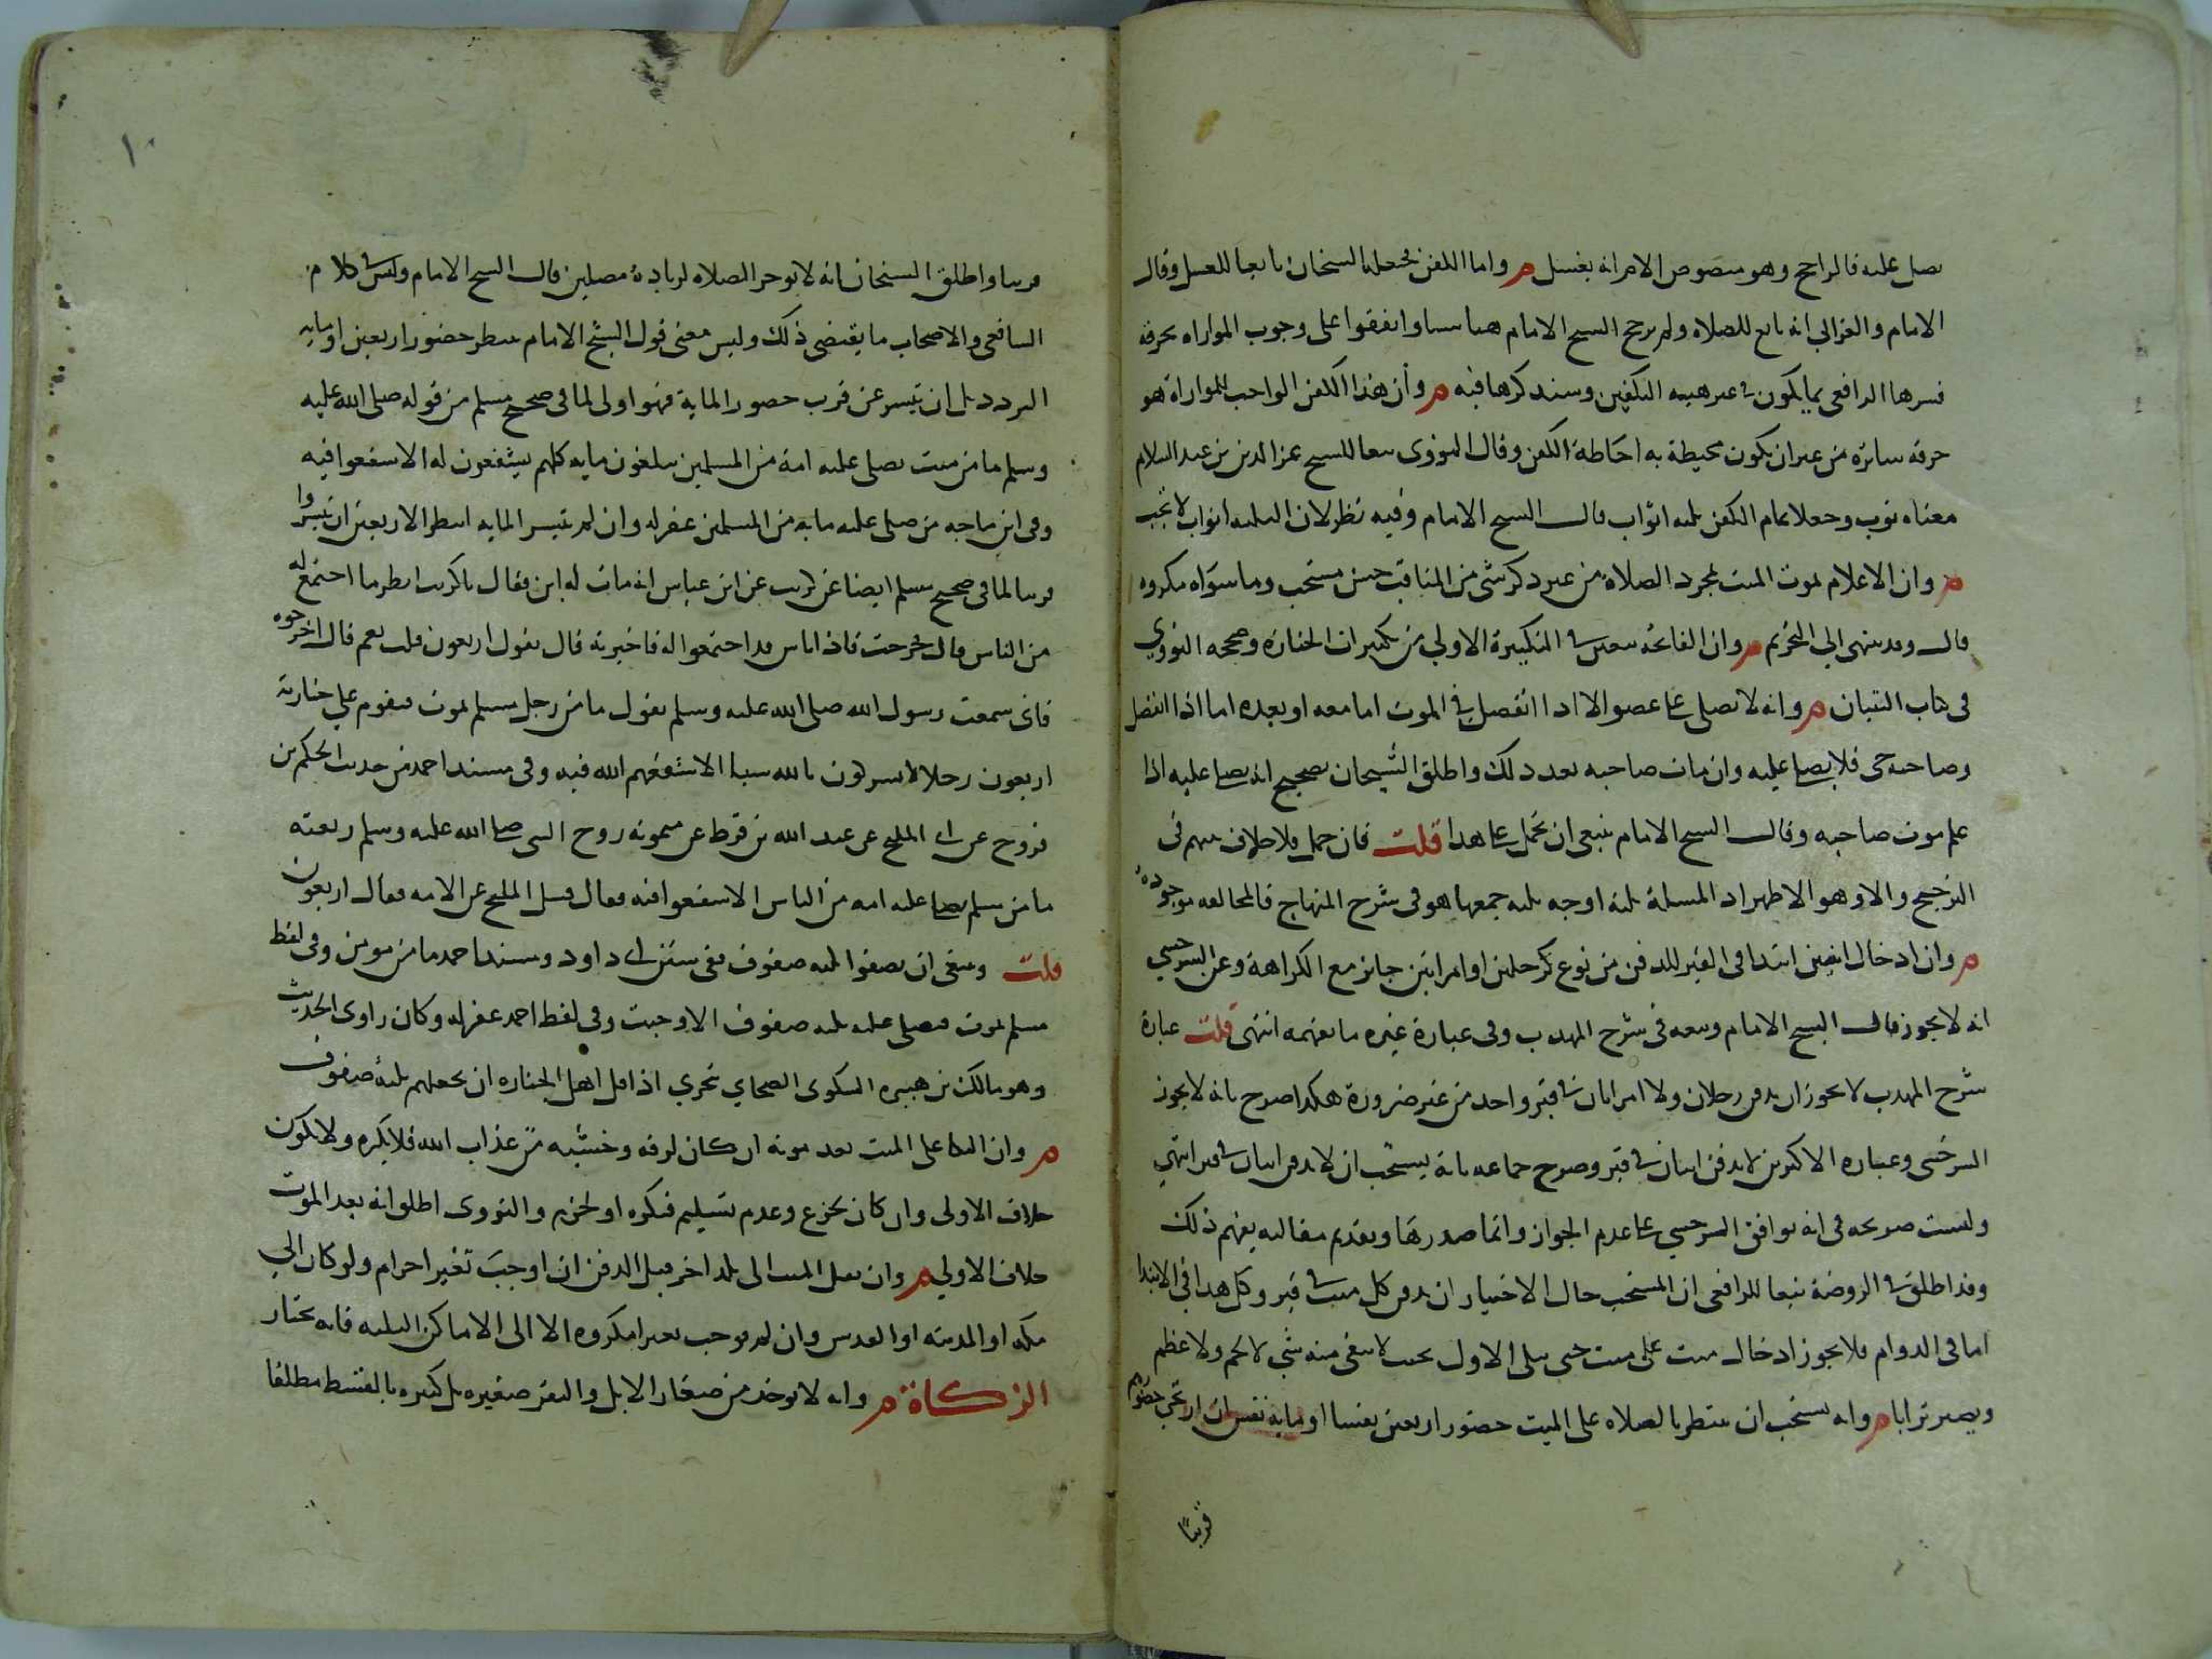 يصل عليه فالراجح وهو منصوص الام انه يغسل م واما الكفن فجعله الشيخان تابعا للغسل وقال
الامام والغزالي انه تابع للصلاه ولم يرجح الشيخ الامام هنا شيا واتفقوا على وجوب المواراه بخرقه
فسرها الرافعي بما يكون في غير هييه التكفين وسنذكرها فيه م وأن هذا الكفن الواجب للمواراة هو
خرقه ساتره من غير ان يكون محيطة به احاطة الكفن وقال النووى تبعا للشيخ عز الدين بن عبد السلام
معناه ثوب وجعلا تمام الكفن ثلثه اثواب قال الشيخ الامام وفيه نظر لان الثلثه اثواب لا تجب
م وان الاعلام بموت الميت لمجرد الصلاة من غير ذكر شى من المناقب حسن مستحب وما سواه مكروه
قال وقد ينتهى الي التحريم م وان الفاتحة تتعين في التكبيرة الاولي من تكبيرات الجنازه وصححه النووي
في كتاب التبيان م وانه لا يصلى على عضو الا اذا انفصل في الموت اما معه او بعده اما اذا انفصل
وصاحبه حى فلا يصلى عليه وان مات صاحبه بعد ذلك واطلق الشيخان تصحيح انه يصلى عليه اذا
علم موت صاحبه وقال الشيخ الامام ينبغى ان يحمل على هذا قلت فان حمل فلا خلاف بينهم فى
الترجيح والا وهو الاظهر اذ المسلة ثلثة اوجه ثلثه جمعها هو فى شرح المنهاج فالمخالفه موجوده
م وان ادخال اثنين ابتدا فى القبر للدفن من نوع كرجلين او امراتين جايز مع الكراهة وعن السرخسي
انه لا يجوز قال الشيخ الامام وتبعه فى شرح المهذب وفى عبارة غيره ما يفهمه انتهى قلت عبارة
شرح المهذب لا يجوز ان يدفن رجلان ولا امراتان في قبر واحد من غير ضرورة هكذا صرح بانه لا يجوز
السرخسى وعباره الاكثرين لا يدفن اثنان في قبر وصرح جماعه بانه يستحب ان لا يدفن اثنان في قبر انتهي
وليست صريحه فى انه يوافق السرخسي على عدم الجواز وانما صدرها وتقديم مقالته يفهم ذلك
وقد اطلق في الروضة تبعا للرافعى ان المستحب حال الاختيار ان يدفن كل ميت في قبر وكل هذا في الابتدا
اما فى الدوام فلا يجوز ادخال ميت على ميت حتى يبلى الاول بحيث لا يبقى منه شي لا لحم ولا عظم
ويصير ترابا م وانه يستحب ان ينتظر بالصلاه على الميت حضور اربعين نفسا او مايه نفس ان ارتجي حضورهم
قريبًا
١٠
قريبا واطلق الشيخان انه لا يوخر الصلاه لزيادة مصلين قال الشيخ الامام وليس في كلام
الشافعى والاصحاب ما يقتضى ذلك وليس معنى قول الشيخ الامام ينتظر حضور اربعين او مايه
التردد بل ان تيسر عن قرب حضور الماية فهو اولى لما فى صحيح مسلم من قوله صلى الله عليه
وسلم ما من ميت يصلى عليه امة من المسلمين يبلغون مايه كلهم يشفعون له الا شفعوا فيه
وفى ابن ماجه من صلى عليه مايه من المسلمين غفر له وان لم تتيسر المايه انتظر الاربعين ان تيسروا
قريبا لما فى صحيح مسلم ايضا عن كريب عن ابن عباس انه مات له ابن فقال يا كريب انظر ما اجتمع له
من الناس قال فخرجت فاذا اناس قد اجتمعوا له فاخبرته قال تقول اربعون قلت نعم قال اخرجوه
فانى سمعت رسول الله صلى الله عليه وسلم يقول ما من رجل مسلم يموت فيقوم علي جنازته
اربعون رجلا لا يشركون بالله شيا الا شفعهم الله فيه وفى مسند احمد من حديث الحكم بن
فروخ عن ابى المليح عن عبد الله بن قرط عن ميمونه زوج النبي صلى الله عليه وسلم رفعته
ما من مسلم يصلى عليه امه من الناس الا شفعوا فيه فقال فسئل المليح عن الامه فقال اربعون
قلت وينبغى ان يصفوا ثلثه صفوف ففى سنن ابى داود ومسند احمد ما من مومن وفى لفظ
مسلم يموت فيصلى عليه ثلثه صفوف الا وجبت وفى لفظ احمد غفر له وكان راوى الحديث
وهو مالك بن هبيره السكونى الصحابي يتحري اذا قل اهل الجنازه ان يجعلهم ثلثة صفوف
م وان البكا على الميت بعد موته ان كان لرقه وخشيه من عذاب الله فلا يكره ولا يكون
خلاف الاولى وان كان لجزع وعدم تسليم فيكره او يحرم والنووى اطلق انه بعد الموت
خلاف الاولي م وان نقل الميت الى بلد اخر قبل الدفن ان اوجب تغيرا حرام ولو كان الي
مكه او المدينه او القدس وان لم يوجب تغيرا مكروه الا الى الاماكن الثلثه فانه يختار
الزكاة م وانه لا يوخذ من صغار الابل والبقر صغيره بل كبيره بالقسط مطلقا